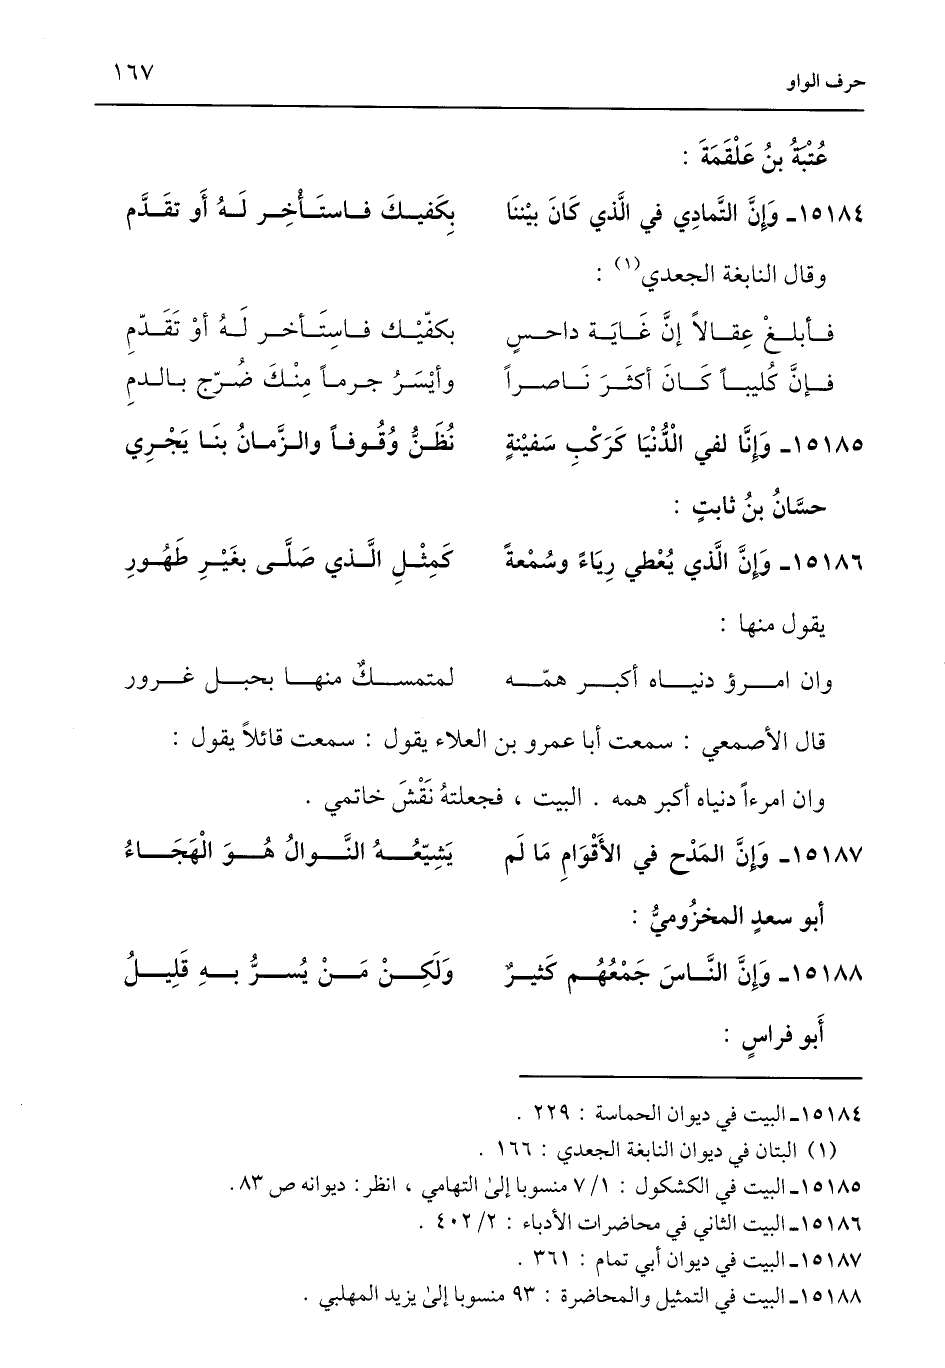 حرف الواو ١٦٧
عُتْبَةُ بنُ عَلْقَمَةَ :
١٥١٨٤ـ وَإِنَّ التَّمادِي في الَّذي كَانَ بيْنَنَا بِكَفيكَ فاستَأْخِر لَهُ أَو تقَدَّمِ
وقال النابغة الجعدي(١) :
فأبلغْ عِقالاً إنَّ غَايَة داحسٍ بكفّيْك فاستَأخِر لَهُ أوْ تَقَدّمِ
فإنَّ كُليباً كَانَ أكثَرَ نَاصراً وأيْسَرُ جرماً مِنْكَ ضُرّج بالدمِ
١٥١٨٥ـ وَإِنَّا لفي الْدُّنْيَا كَرَكْبِ سَفيْنةٍ نُظَنُّ وُقُوفاً والزَّمانُ بنَا يَجْري
حسَّانُ بنُ ثابتٍ :
١٥١٨٦ـ وَإِنَّ الَّذي يُعْطي رِيَاءً وسُمْعةً كَمِثْلِ الَّذي صَلَّى بغَيْرِ طَهُورِ
يقول منها :
وان امرؤ دنياه أكبر همّه لمتمسكٌ منها بحبل غرور
قال الأصمعي : سمعت أبا عمرو بن العلاء يقول : سمعت قائلاً يقول :
وان امرءاً دنياه أكبر همه . البيت ، فجعلتهُ نَقْشَ خاتمي .
١٥١٨٧ـ وَإِنَّ المَدْح في الأَقْوَامِ مَا لَم يَشِيّعْهُ النَّوالُ هُوَ الْهَجَاءُ
أبو سعدٍ المخزُوميُّ :
١٥١٨٨ـ وَإِنَّ النَّاسَ جَمْعُهُم كَثيرٌ وَلَكِنْ مَنْ يُسرُّ بهِ قَلِيلُ
أَبو فراسٍ :
١٥١٨٤ـ البيت في ديوان الحماسة : ٢٢٩ .
(١) البتان في ديوان النابغة الجعدي : ١٦٦ .
١٥١٨٥ـ البيت في الكشكول : ١/ ٧ منسوبا إلىٰ التهامي ، انظر : ديوانه ص ٨٣ .
١٥١٨٦ـ البيت الثاني في محاضرات الأدباء : ٢/ ٤٠٢ .
١٥١٨٧ـ البيت في ديوان أبي تمام : ٣٦١ .
١٥١٨٨ـ البيت في التمثيل والمحاضرة : ٩٣ منسوبا إلىٰ يزيد المهلبي .